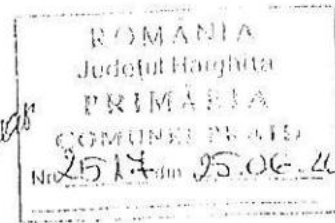 ROMÂNIA
Județul Harghita
PRIMĂRIA
COMUNEI PRAID
Nr. 2517 din 25.06.